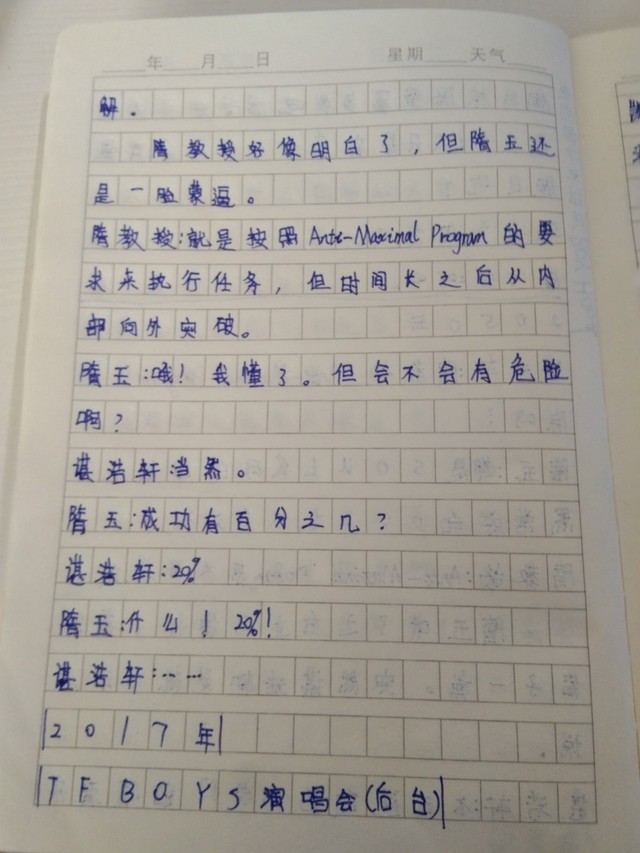 年 月 日 星期 天气
解。
隋教授好像明白了，但隋玉还
是一脸蒙逼。
隋教授：就是按照Ante-Maximal Program的要
求来执行任务，但时间长之后从内
部向外突破。
隋玉：哦！我懂了。但会不会有危险
啊？
谌浩轩：当然。
隋玉：成功有百分之几？
谌浩轩：20%
隋玉：什么！20%！
谌浩轩：……
2017年
TFBOYS演唱会(后台)